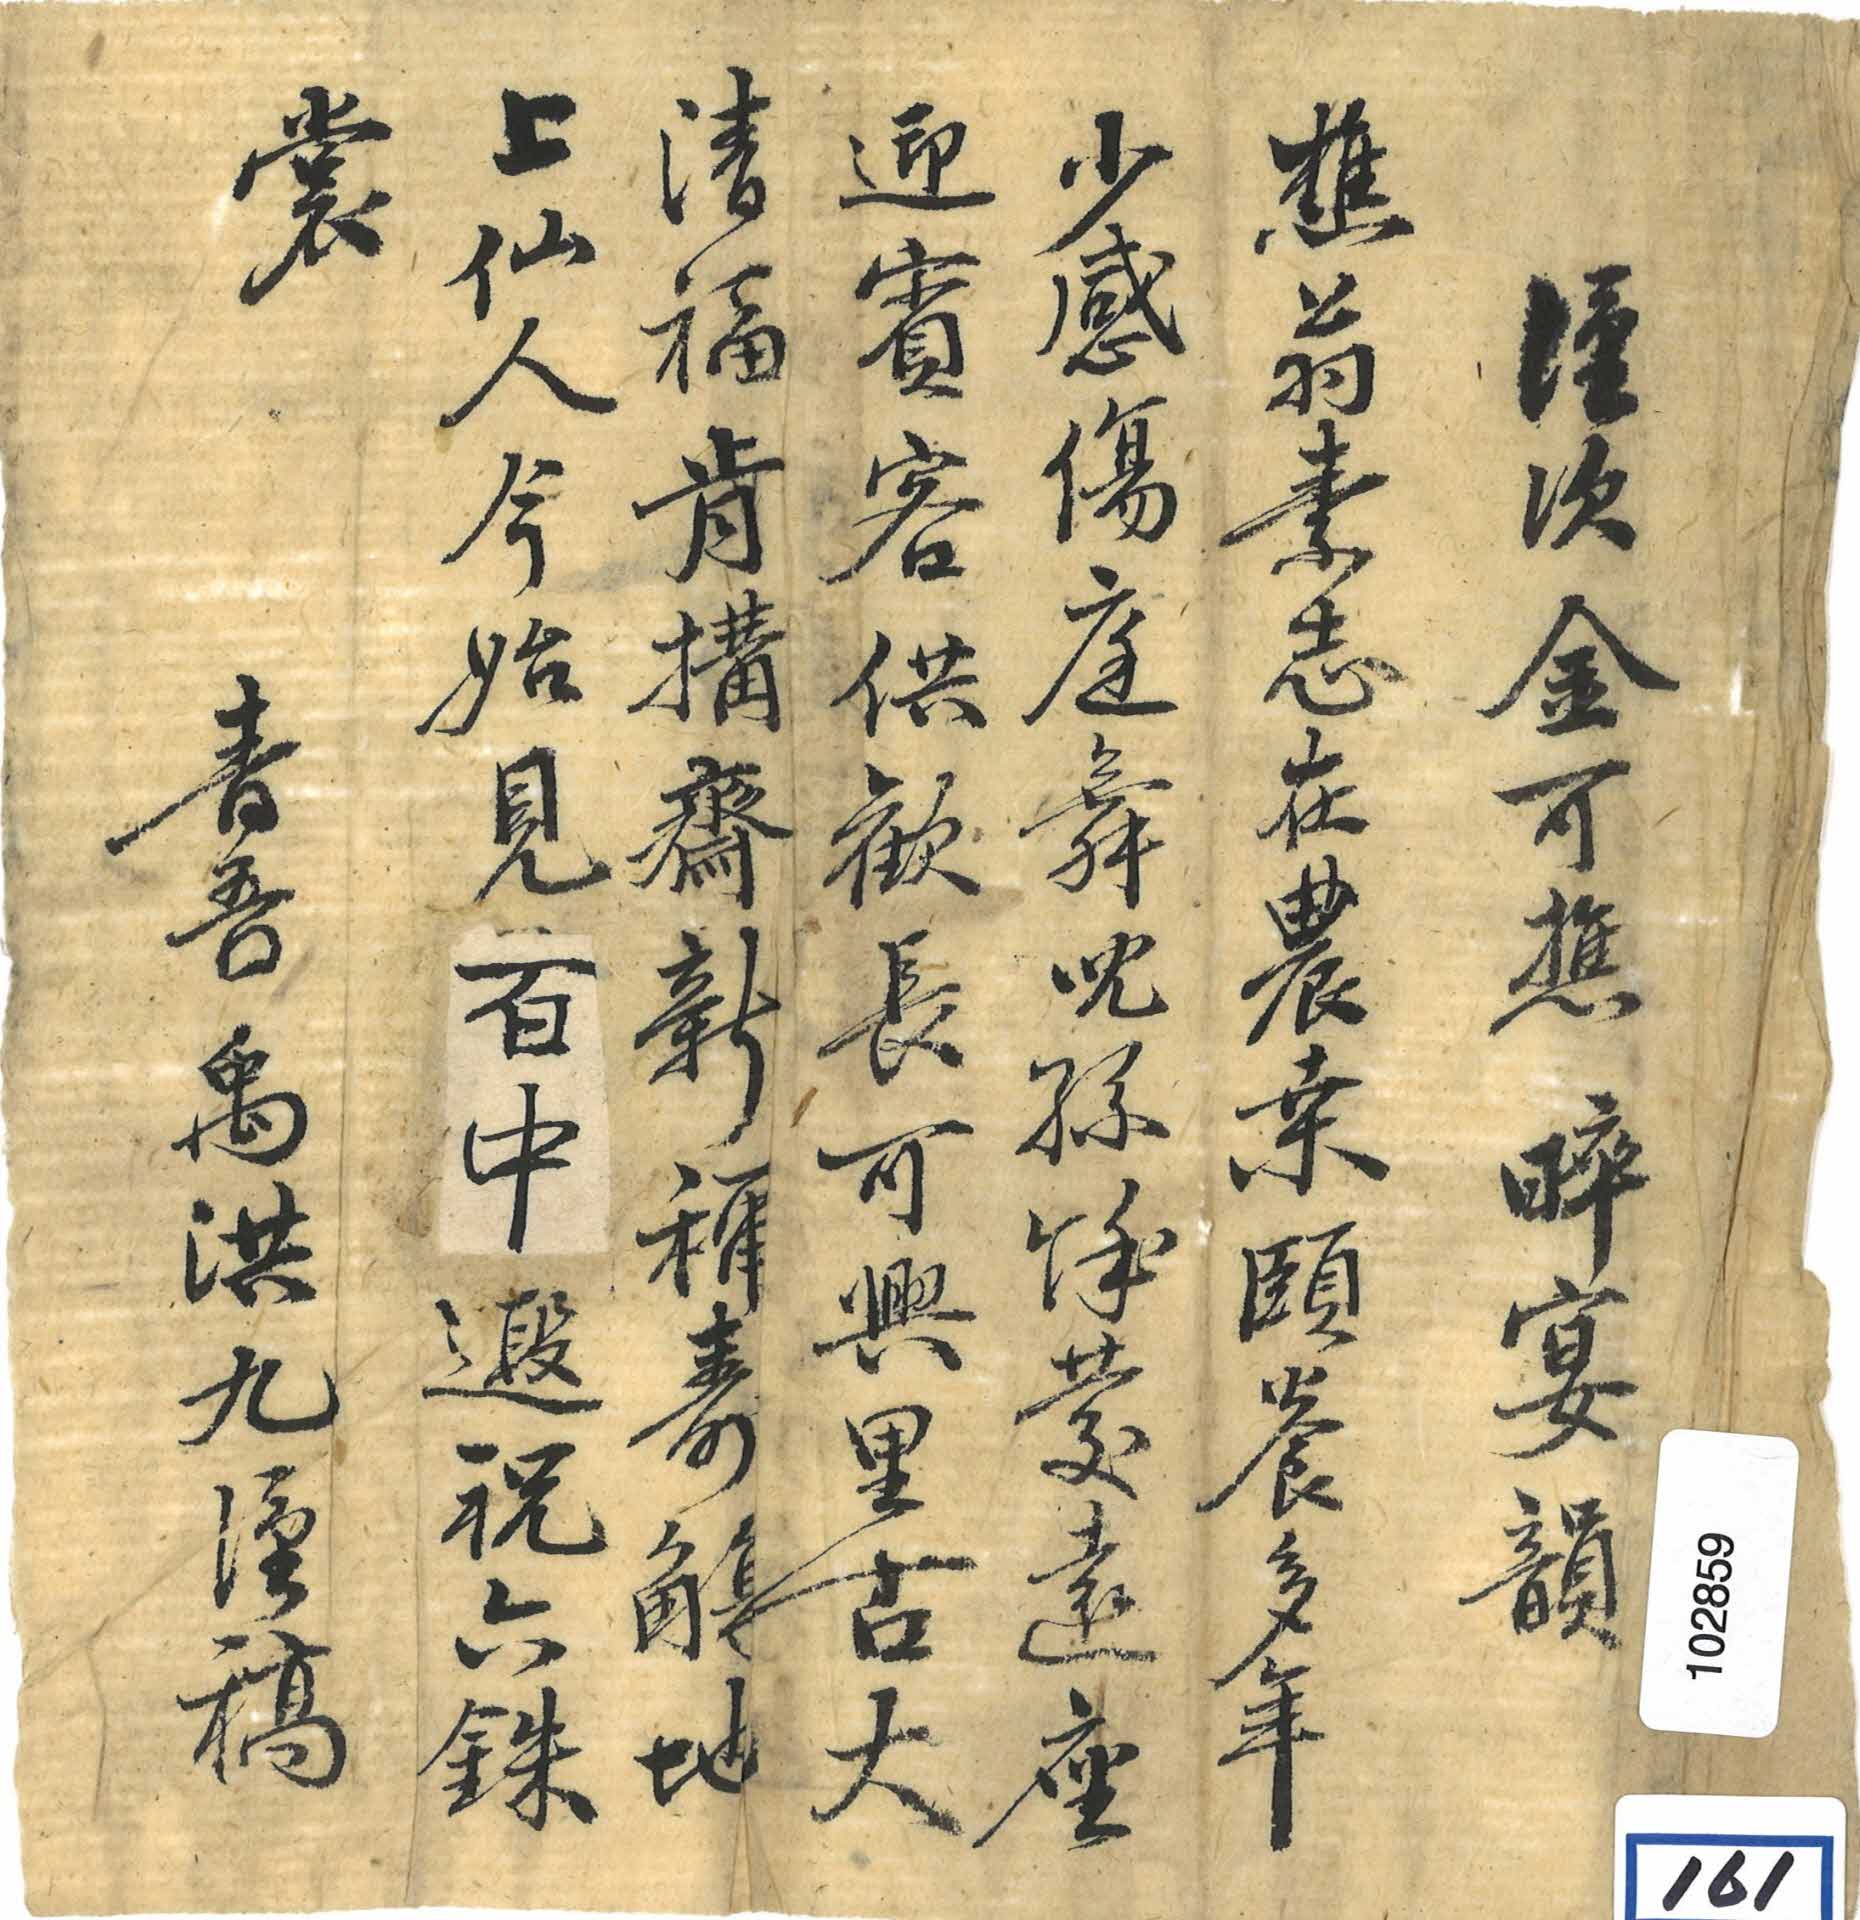 謹次金可樵晬宴韻
樵翁素志在農桒頤養多年
少感傷庭舞兕孫條蔓遠座
迎賓客供歡長可興里古大
清福肯搆齋新種壽觴地
上仙人今始見百中遐祝六銖
裳
春吾禹洪九謹稿
102859
161